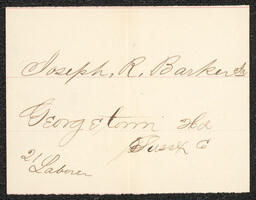 Joseph. R. Barker
Georgetown Hd
Sussx C
21 Laborer